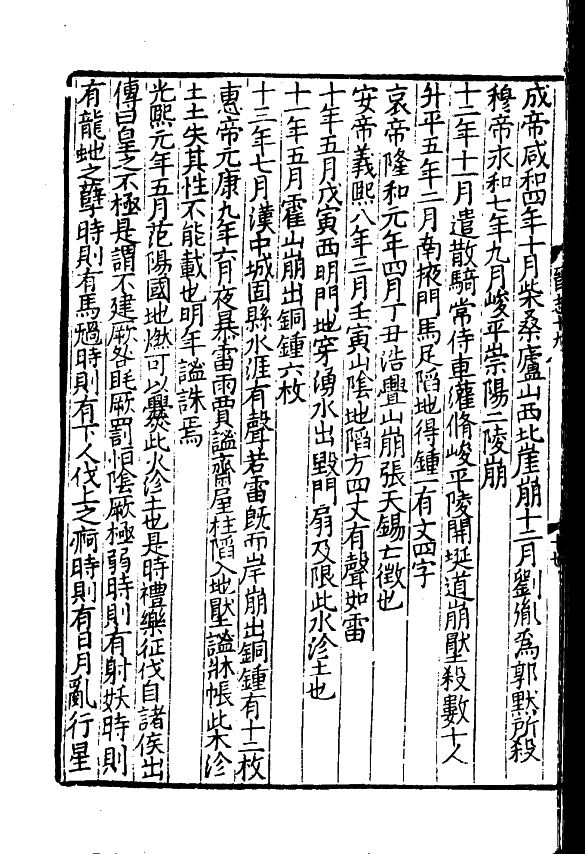 成帝咸和四年十月柴桑廬山西北崖崩十二月劉胤爲郭默所殺
穆帝永和七年九月峻平崇陽二陵崩
十二年十一月遣散騎常侍車灌脩峻平陵開埏道崩壓殺數十人
升平五年二月南掖門馬足陷地得鍾一有文四字
哀帝隆和元年四月丁丑浩亹山崩張天錫亡徵也
安帝義熙八年三月壬寅山陰地陷方四丈有聲如雷
十年五月戊寅西明門地穿湧水出毀門扇及限此水沴土也
十一年五月霍山崩出銅鍾六枚
十三年七月漢中城固縣水涯有聲若雷旣而岸崩出銅鍾有十二枚
惠帝元康九年六月夜暴雷雨賈謐齋屋柱陷入地壓謐牀帳此木沴
土土失其性不能載也明年謐誅焉
光熙元年五月范陽國地燃可以爨此火沴土也是時禮樂征伐自諸侯出
傳曰皇之不極是謂不建厥咎眊厥罰恒陰厥極弱時則有射妖時則
有龍虵之孽時則有馬禍時則有下人伐上之痾時則有日月亂行星